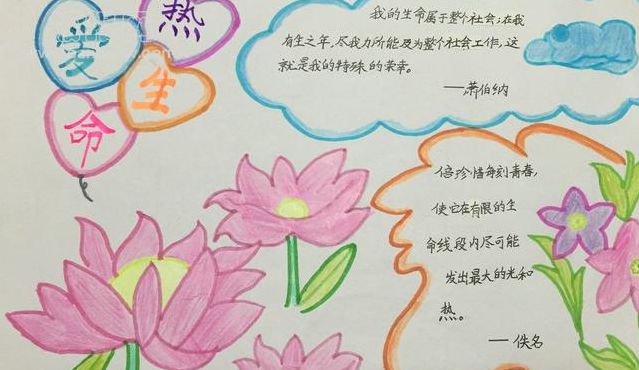 热爱生命
我的生命属于整个社会;在我
有生之年,尽我力所能及为整个社会工作,这
就是我的特殊的荣幸。
——萧伯纳
倍珍惜每刻青春,
使它在有限的生
命线段内尽可能
发出最大的光和
热。
——佚名